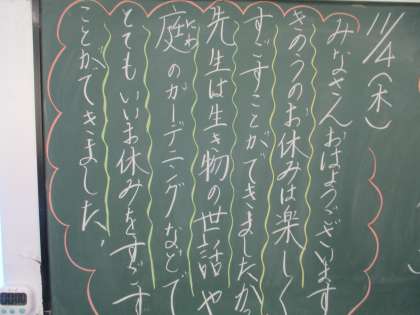 11/4(木)
みなさんおはようございます
きのうのお休みは楽しく
すごすことができましたか
先生は生き物の世話や
庭のガーデニングなどで
にわ
とてもいいお休みをすごす
ことができました。